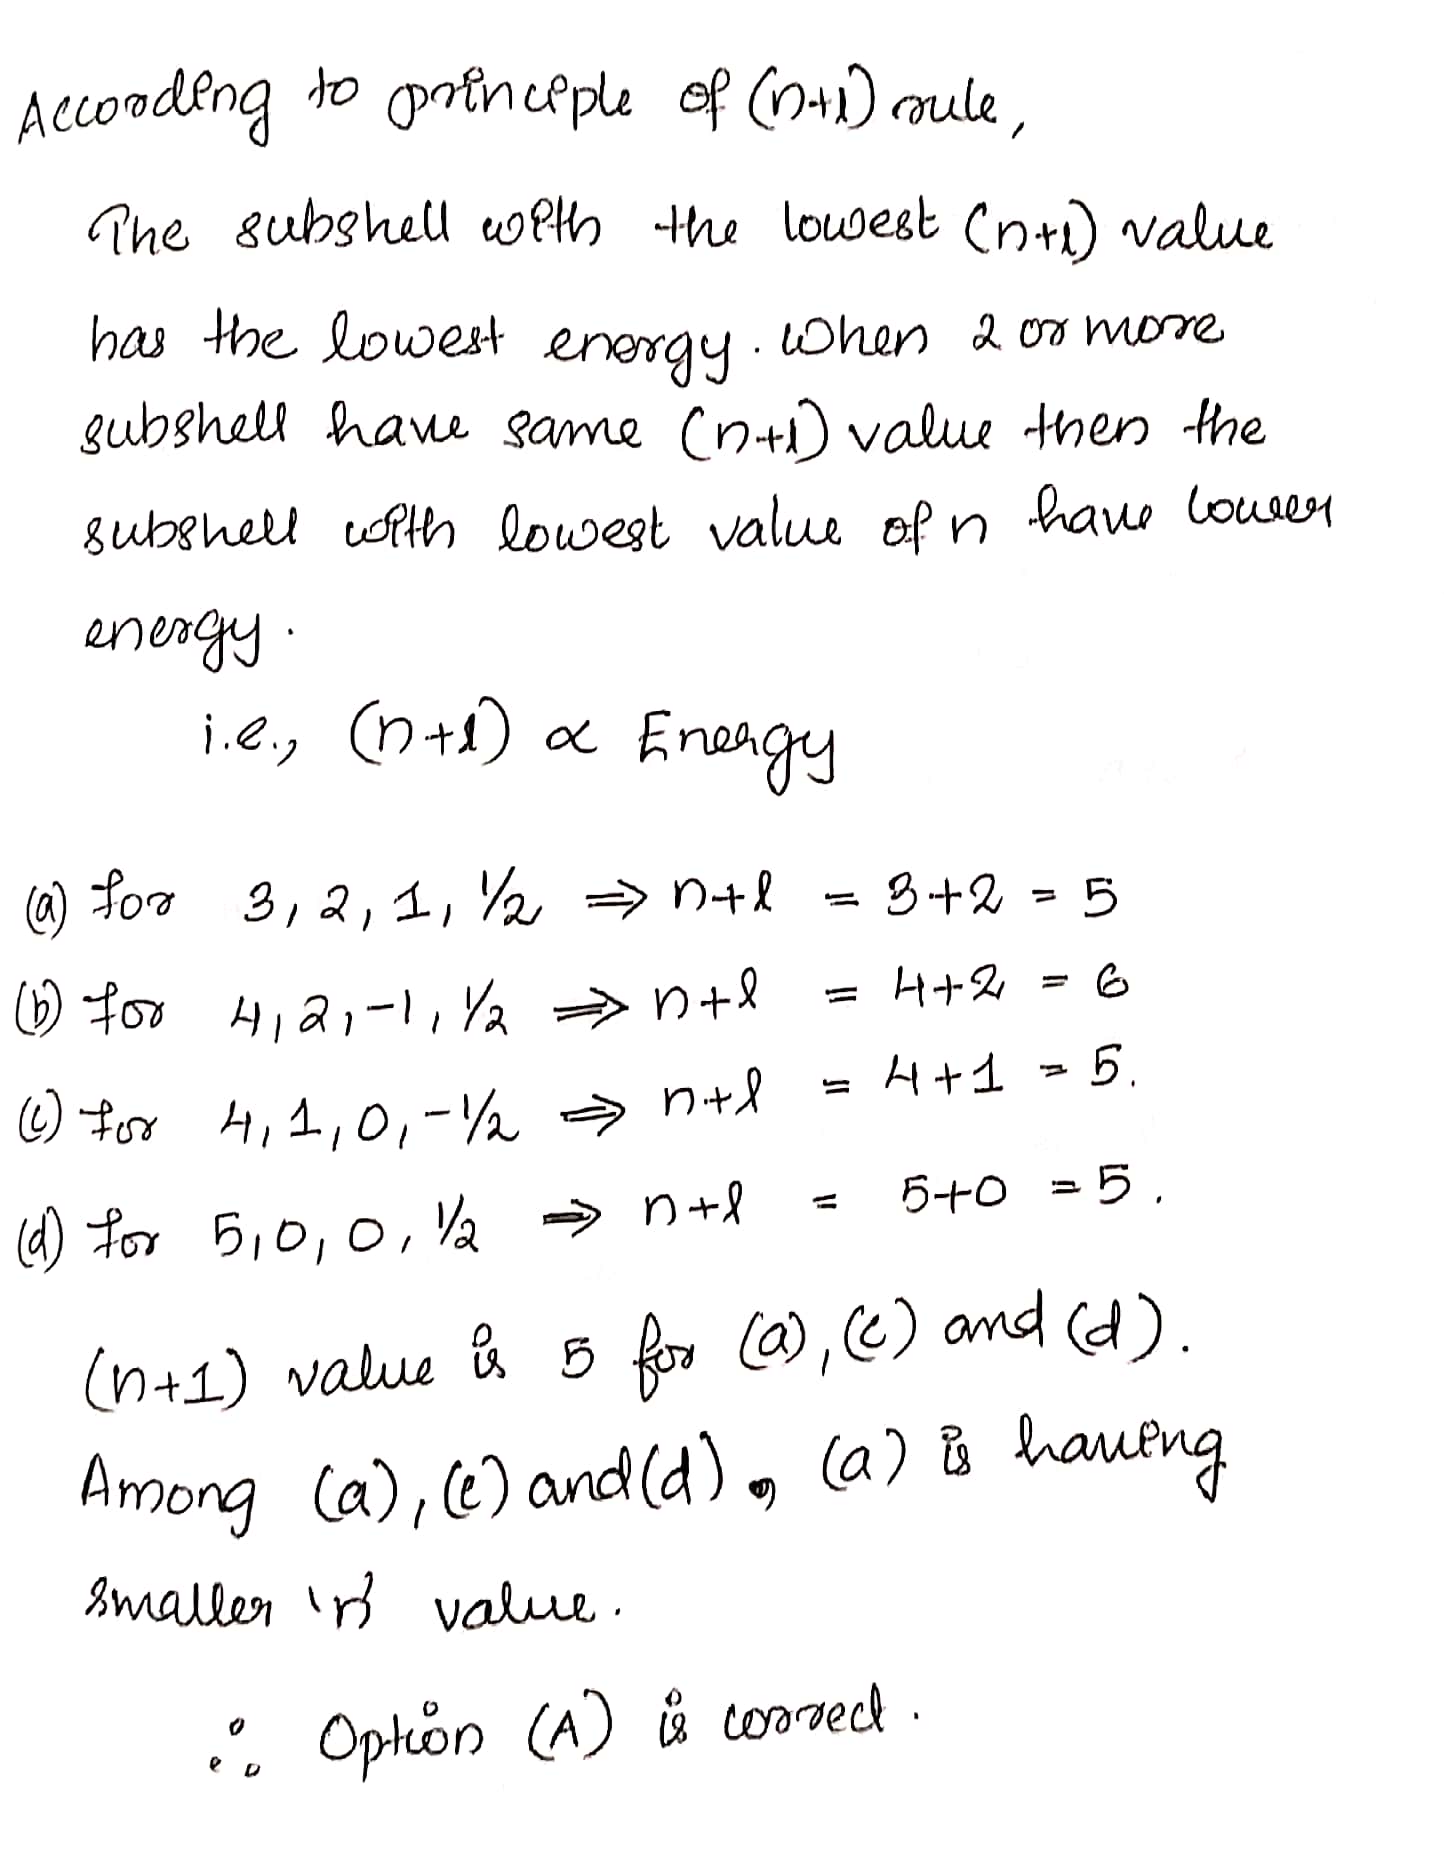 According to principle of (n+l) rule,
The subshell with the lowest (n+l) value
has the lowest energy. When 2 or more
subshell have same (n+l) value then the
subshell with lowest value of n have lower
energy.
i.e., (n+l) ∝ Energy
(a) for 3, 2, 1, 1/2 ⇒ n+l = 3+2 = 5
(b) for 4, 2, -1, 1/2 ⇒ n+l = 4+2 = 6
(c) for 4, 1, 0, -1/2 ⇒ n+l = 4+1 = 5.
(d) for 5, 0, 0, 1/2 ⇒ n+l = 5+0 = 5.
(n+1) value is 5 for (a), (c) and (d).
Among (a), (c) and (d), (a) is having
smaller 'n' value.
∴ Option (A) is correct.